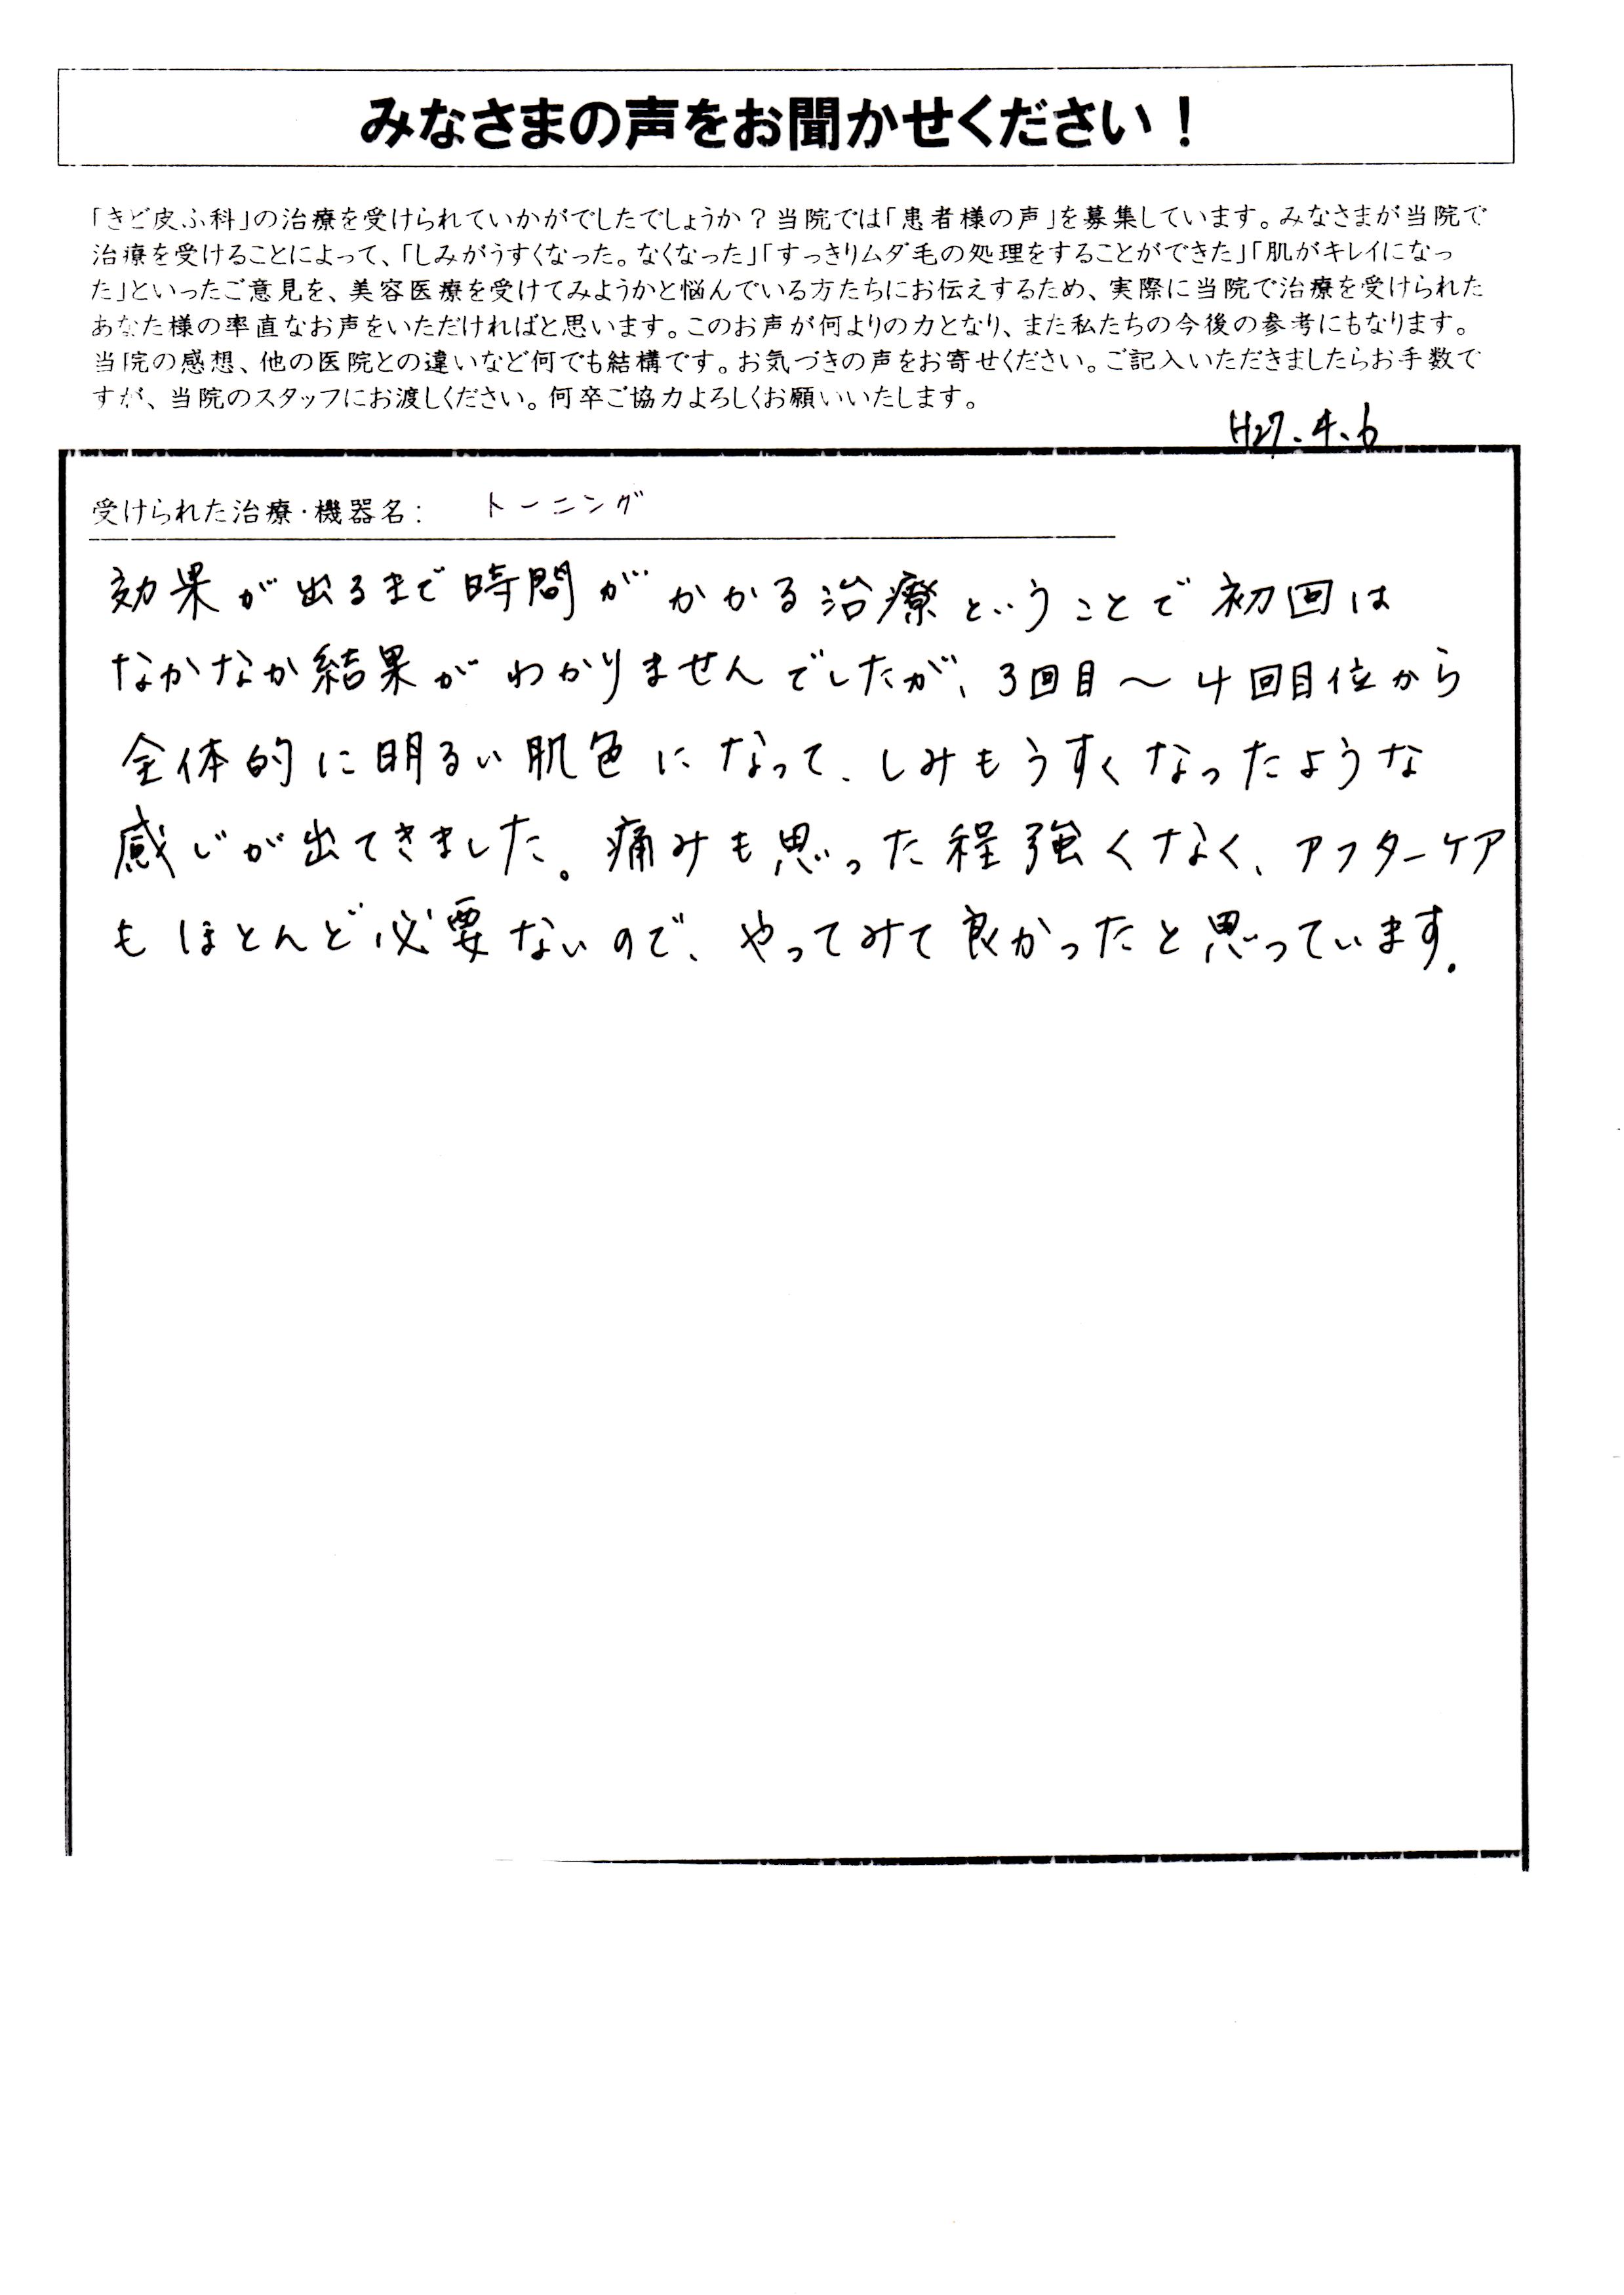 みなさまの声をお聞かせください！
「きど皮ふ科」の治療を受けられていかがでしたでしょうか？当院では「患者様の声」を募集しています。みなさまが当院で
治療を受けることによって、「しみがうすくなった。なくなった」「すっきりムダ毛の処理をすることができた」「肌がキレイになっ
た」といったご意見を、美容医療を受けてみようかと悩んでいる方たちにお伝えするため、実際に当院で治療を受けられた
あなた様の率直なお声をいただければと思います。このお声が何よりの力となり、また私たちの今後の参考にもなります。
当院の感想、他の医院との違いなど何でも結構です。お気づきの声をお寄せください。ご記入いただきましたらお手数で
すが、当院のスタッフにお渡しください。何卒ご協力よろしくお願いいたします。
H27.4.6
受けられた治療・機器名： トーニング
効果が出るまで時間がかかる治療ということで初回は
なかなか結果がわかりませんでしたが、3回目〜4回目位から
全体的に明るい肌色になって、しみもうすくなったような
感じが出てきました。痛みも思った程強くなく、アフターケア
もほとんど必要ないので、やってみて良かったと思っています。